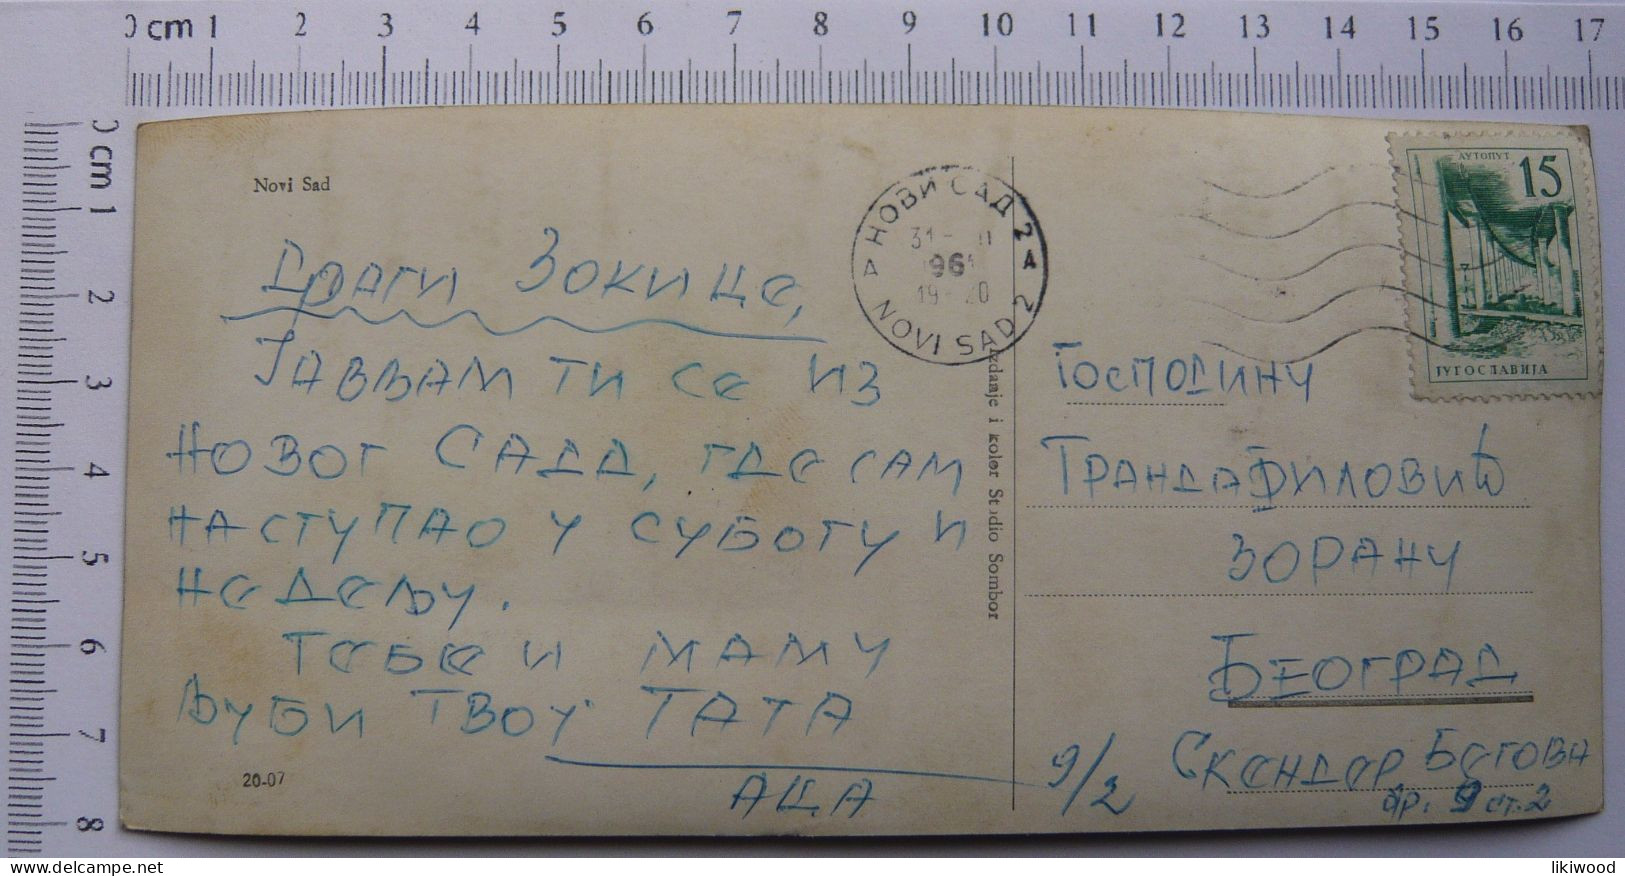 0 cm 1 2 3 4 5 6 7 8 9 10 11 12 13 14 15 16 17
0 cm 1 2 3 4 5 6 7 8
Novi Sad
Драги Зокице,
Јављам ти се из
Новог Сада, где сам
наступао у суботу и
недељу.
Тебе и маму
љуби твој тата
Аца
20-07
НОВИ САД 2
31-
1961
19-20
А
NOVI SAD 2
Izdanje i kolor Studio Sombor
АУТОПУТ
15
ЈУГОСЛАВИЈА
Господину
Трандафиловић
Зорану
Београд
9/2 Скендер Бегова
бр. 9 ст. 2
likiwood